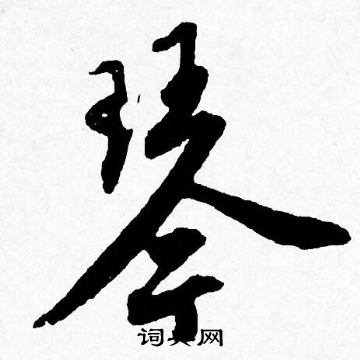 琴
词典网